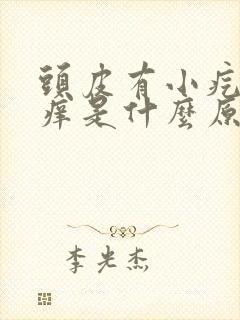 頭皮有小疙
癢是什麼原
李光杰